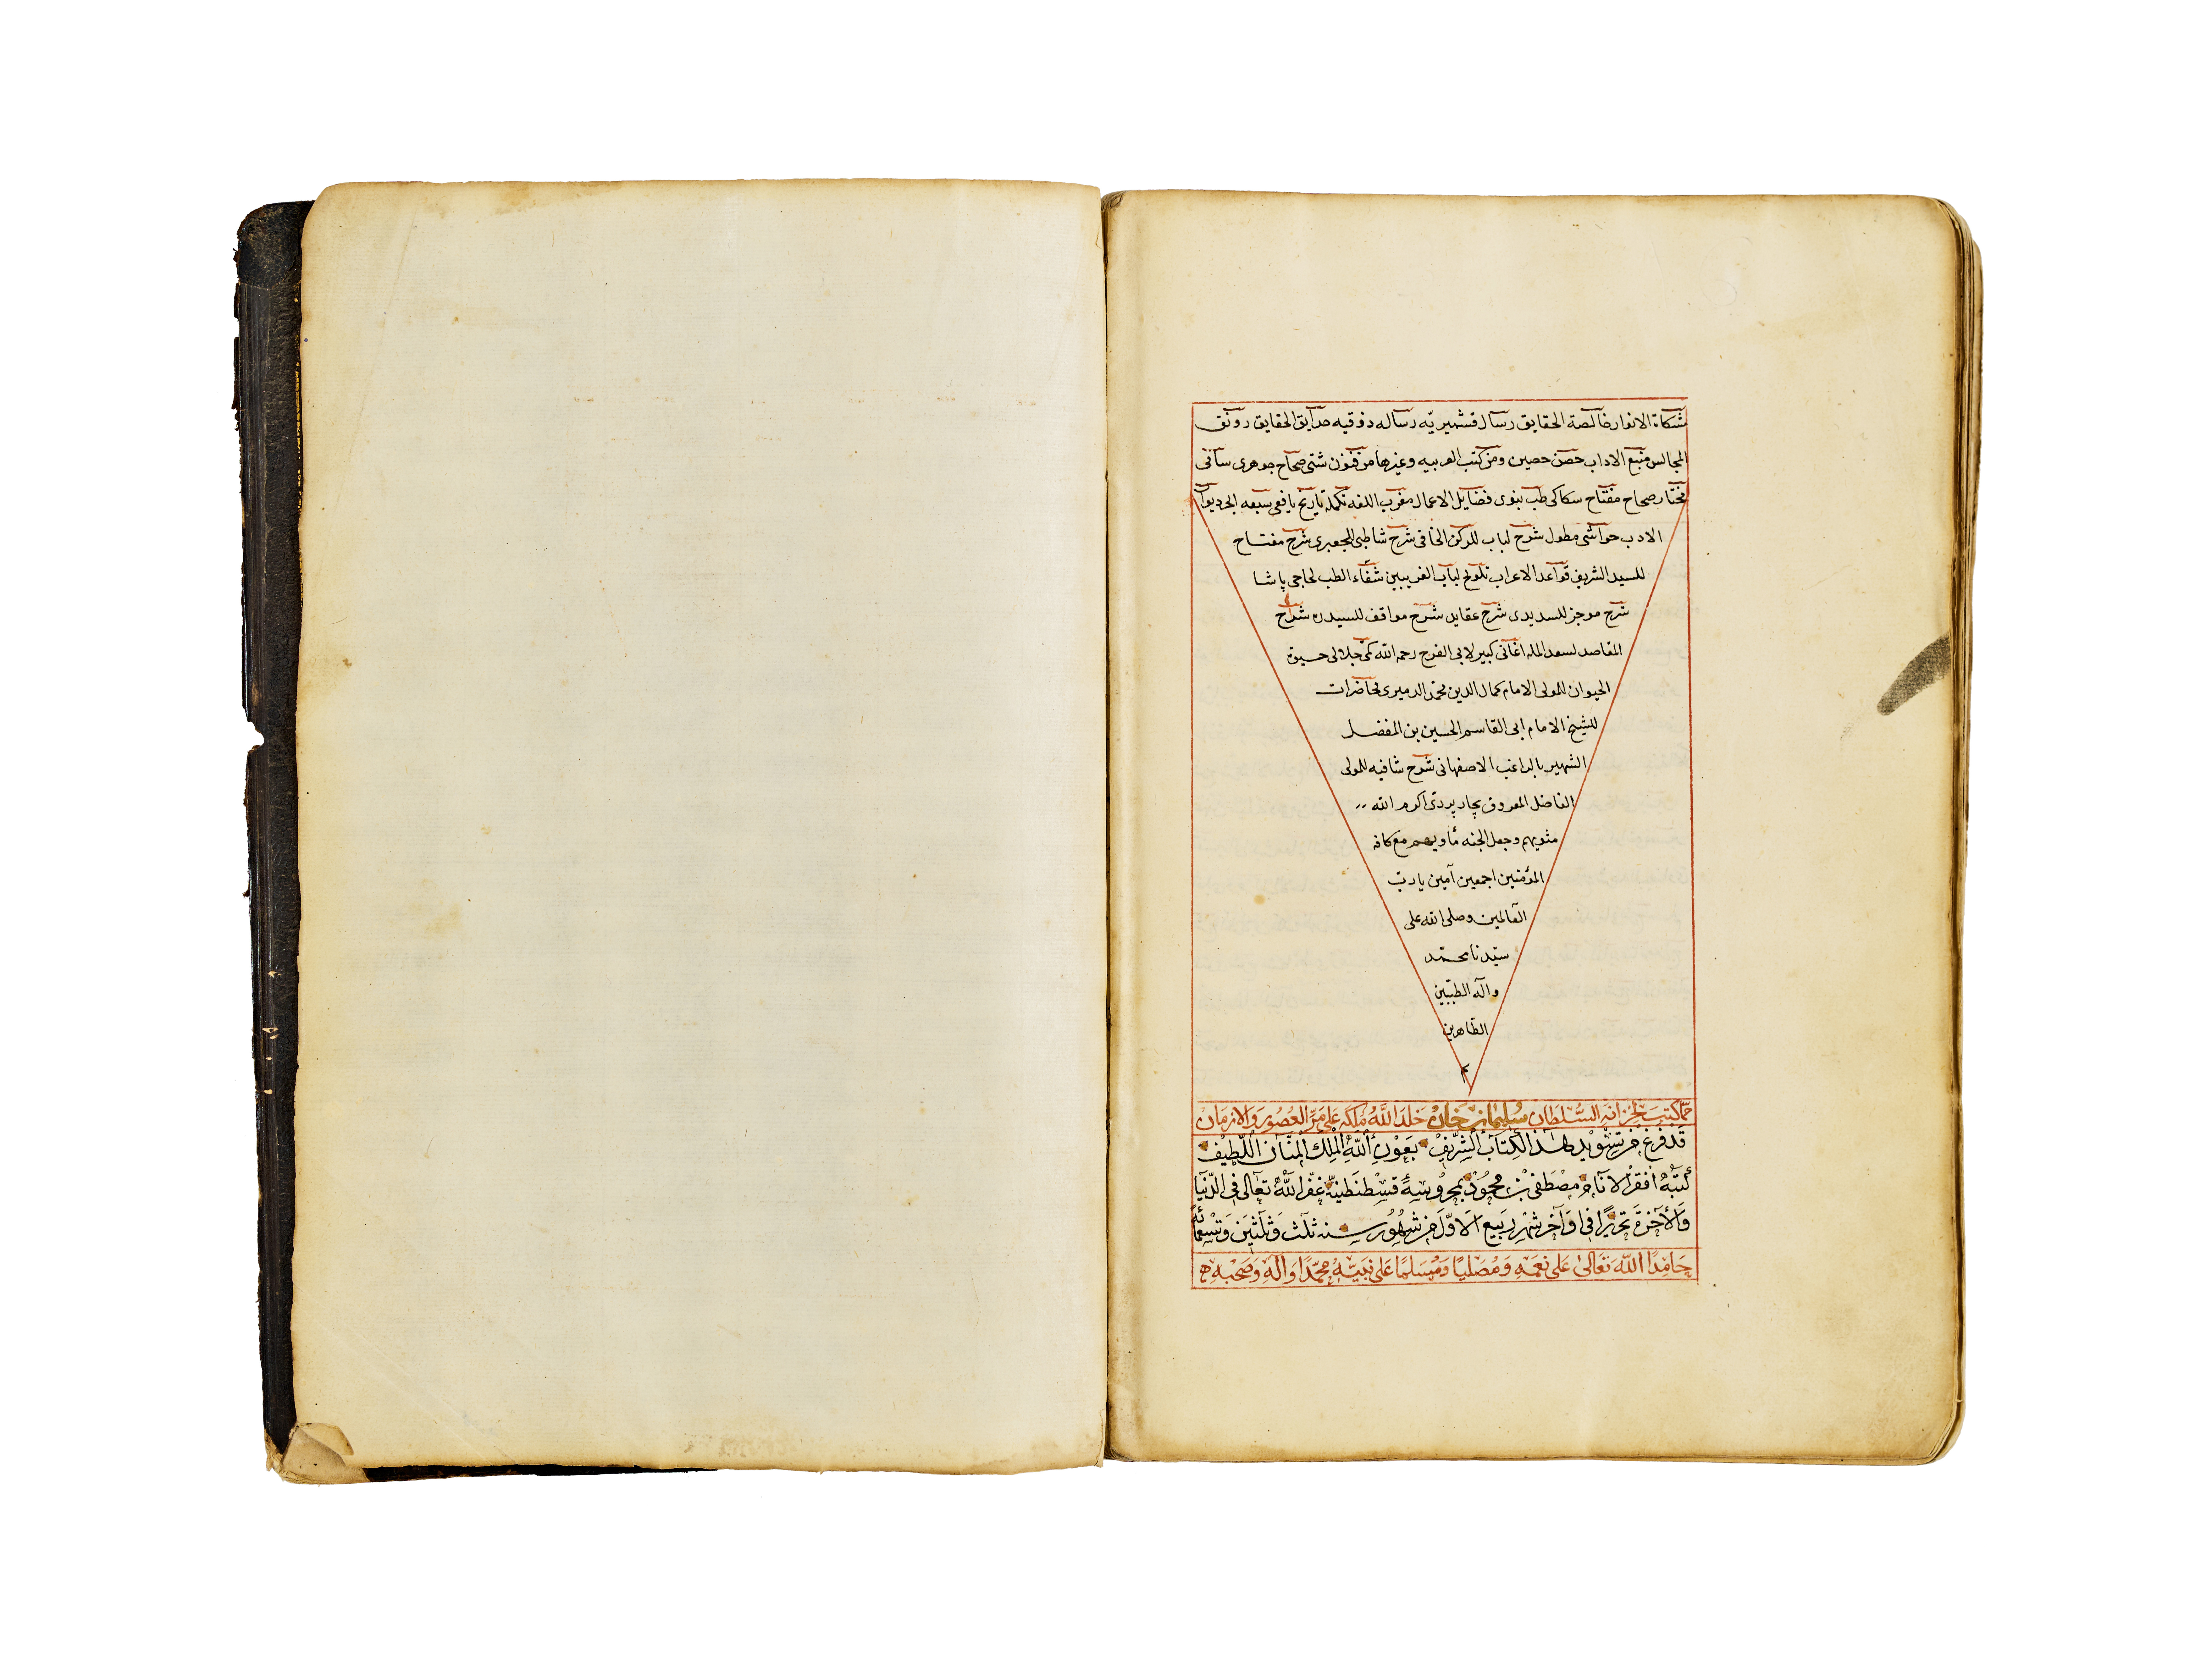 مشكاة الانوار خالصة الحقايق رساله قشيريه رساله ذوقيه حدايق الحقايق رونق
المجالس منبع الاداب حصن حصين ومن كتب العربيه وغيرها من فنون شتى صحاح جوهرى سامى
مختار صحاح مفتاح سكاكى طب نبوى فضايل الاعمال مغرب اللغه تكمله تاريخ يافعى سبعه ابحر ديوان
الادب حواشى مطول شرح لباب للركن الخافى شرح شاطبى للجعبرى شرح مفتاح
للسيد الشريف قواعد الاعراب تلويح لباب الغريبين شفاء الطب لحاجى پاشا
شرح موجز للسديدى شرح عقايد شرح مواقف للسيد ره شرح
المقاصد لسعد المله اغانى كبير لابى الفرج رحمه الله كى جلالى حيوة
الحيوان للمولى الامام كمال الدين محمد الدميرى محاضرات
للشيخ الامام ابى القاسم الحسين بن المفضل
الشهير بالراغب الاصفهانى شرح شافيه للمولى
الفاضل المعروف بچارپردى اكرم الله
مثويهم وجعل الجنه مأويهم مع كافه
المؤمنين اجمعين آمين يا رب
العالمين وصلى الله على
سيدنا محمد
وآله الطيبين
الطاهرين
م
مما كتب لخزانة السُّلطان سُليمان خان خلد اللهُ مُلكه على مرّ العُصُور والازمان
قد فرغ من تسويد هذا الكتاب الشريف بعون الله الملك المنان اللطيف
كتبه افقر الانام مصطفى بن محمود بمحروسة قسطنطنية غفر الله تعالى في الدنيا
والآخرة تحريرًا في اواخر شهر ربيع الاوّل من شهور سنه ثلث وثلثين وتسعمائه
حامدًا الله تعالى على نعمه ومصليًا ومسلمًا على نبيه محمدًا وآله وصحبه